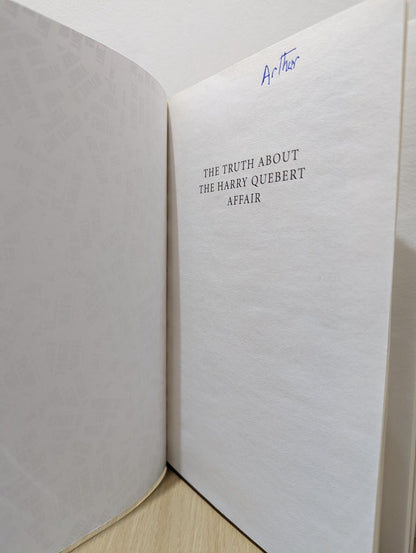 Arthur
THE TRUTH ABOUT
THE HARRY QUEBERT
AFFAIR